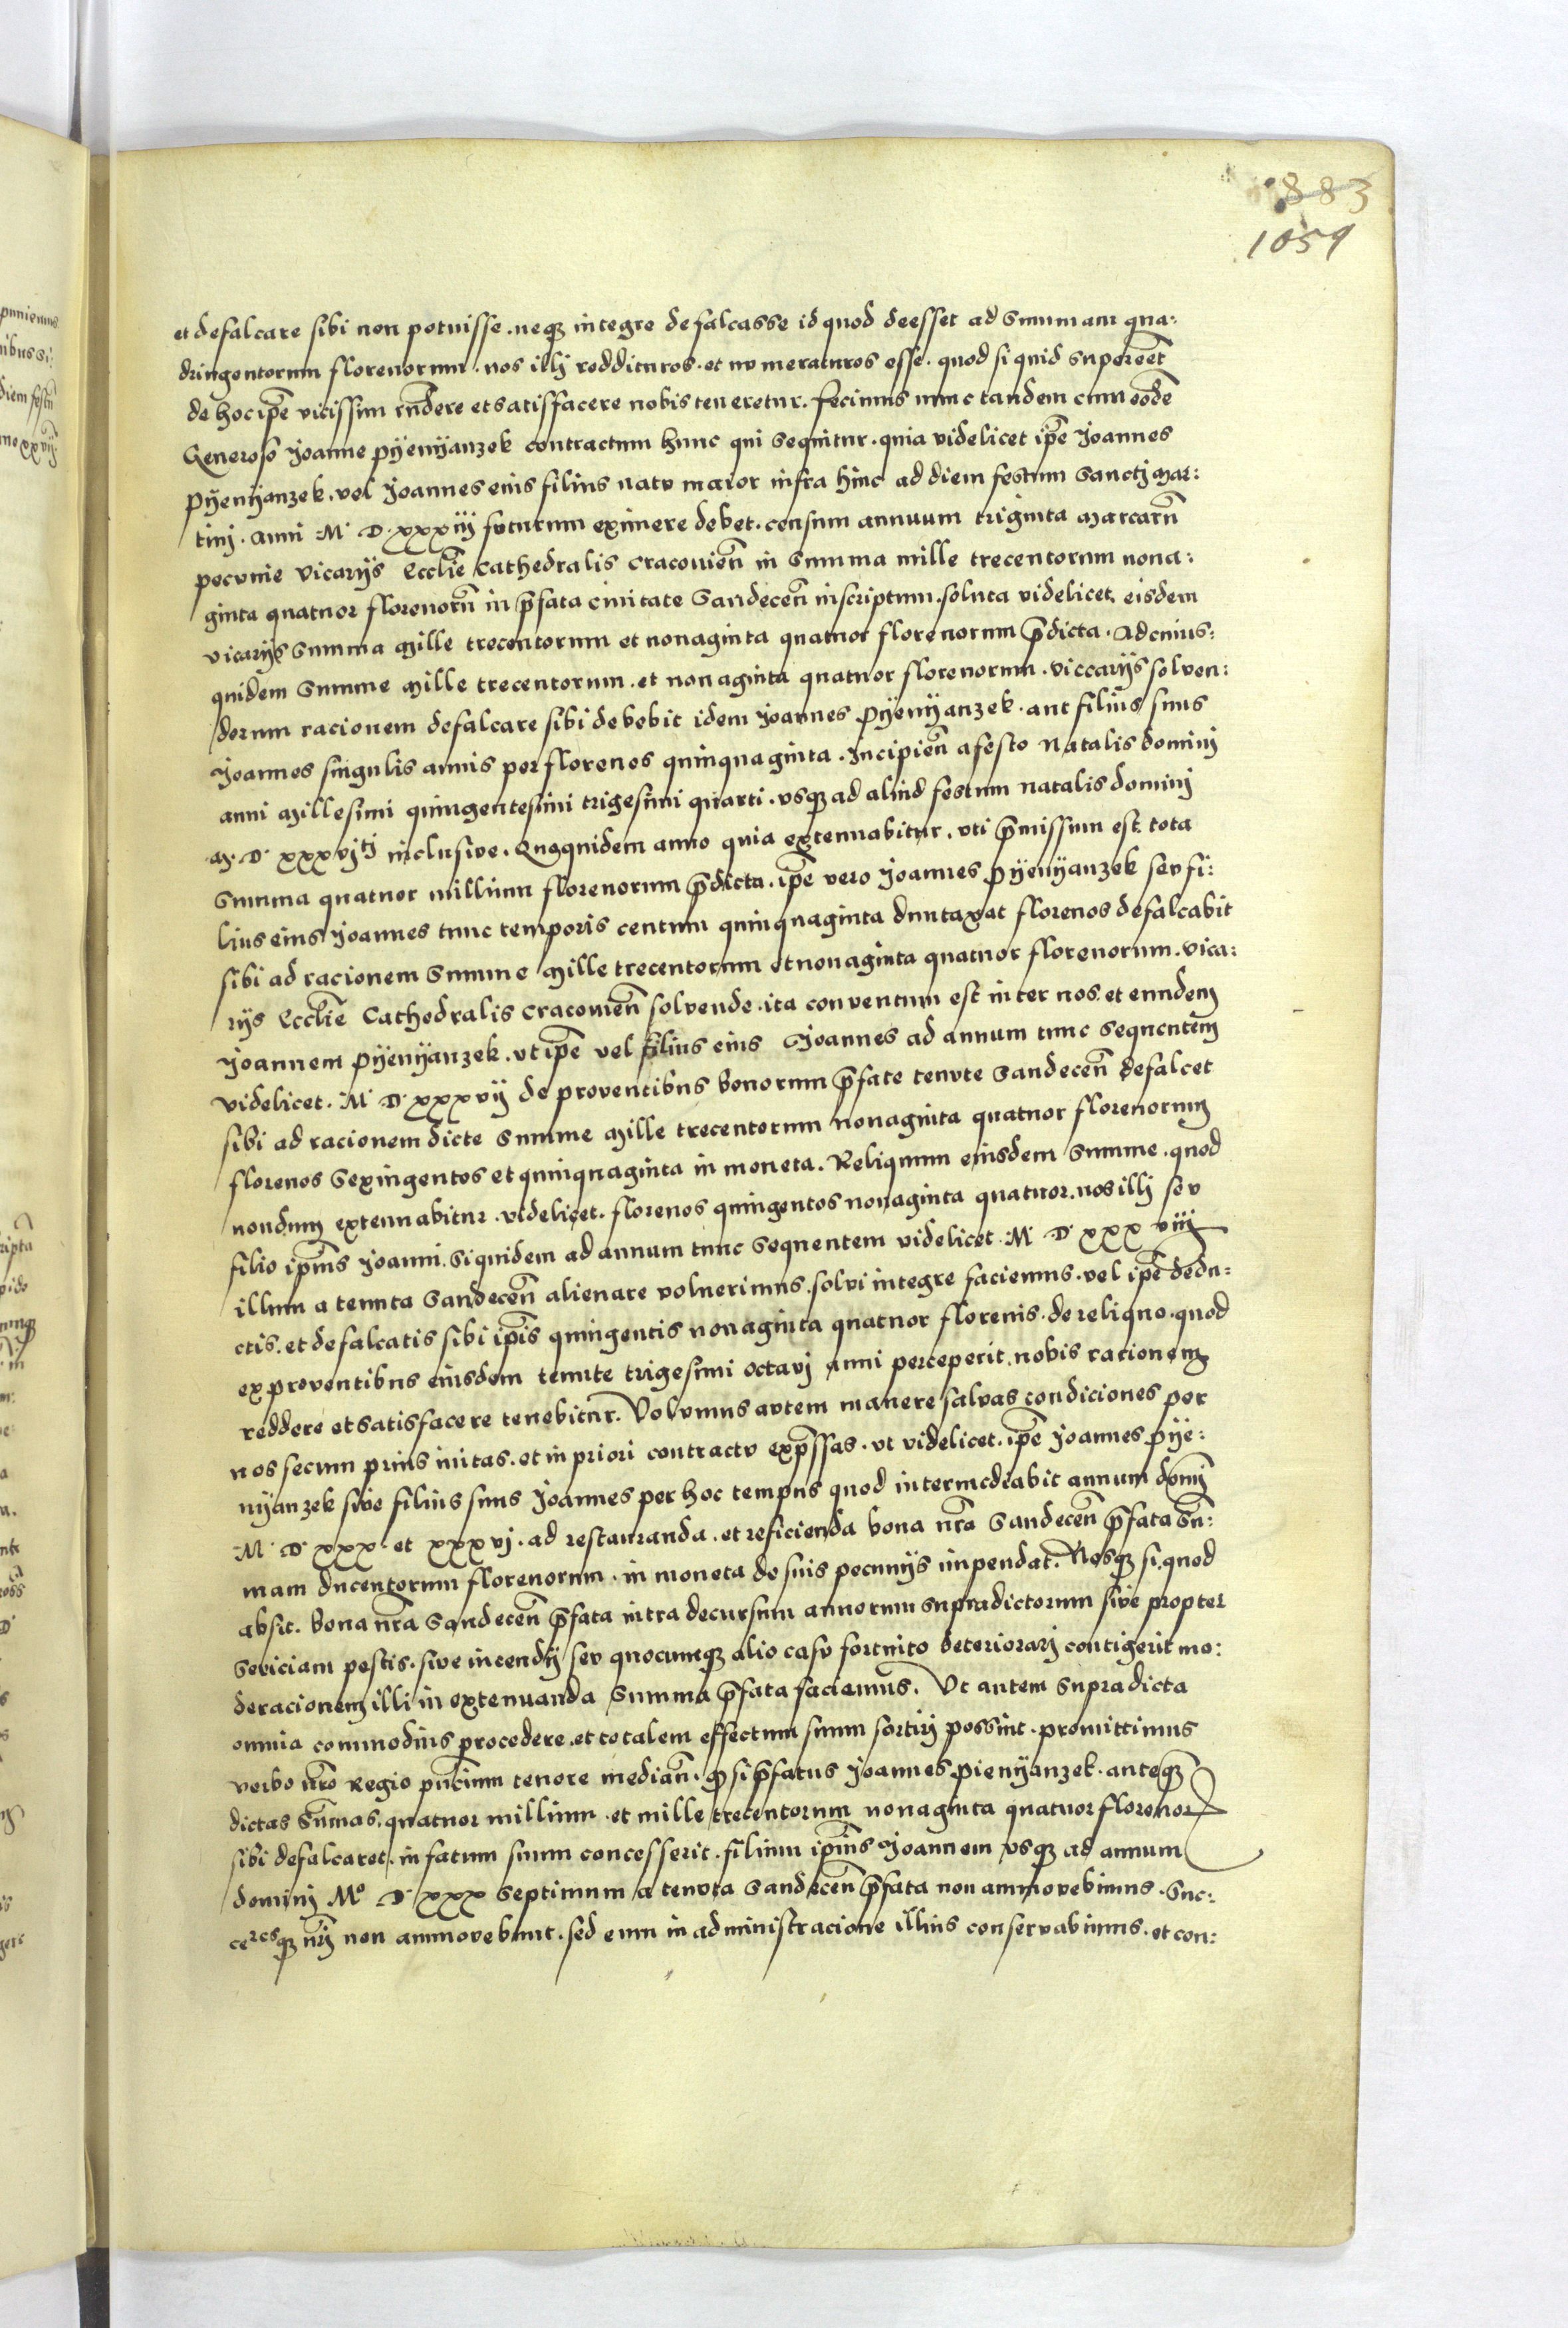 883
1059
et defalcare sibi non potuisse. neqȝ integre defalcasse id quod deesset ad Summam qua:
dringentorum florenorum. nos illj reddituros. et nvmeraturos esse. quod si quid superēēt
de hoc ip̄e vicissim rn̄dere et satisfacere nobis teneretur. Fecimus nunc tandem cum eodē
Generoso Joanne Pÿenÿanzek contractum hunc qui sequitur. quia videlicet ip̄e Joannes
Pÿenÿanzek. vel Joannes eius filius natv maior infra hinc ad diem festum Sanctj Mar:
tinj. Anni M. D. xxxiij futurum eximere debet. censum annuum triginta Marcarū
pecvnie Vicarijs Eccl̄ie Cathedralis Cracovien̄ in Summa mille trecentorum nona:
ginta quatuor florenorū in p̄fata civitate Sandecen̄ inscriptum. soluta videlicet eisdem
vicarijs Summa Mille trecentorum et nonaginta quatuor florenorum p̄dicta. Ad cuius:
quidem Summe Mille trecentorum. et nonaginta quatuor florenorum. viccarijs solven:
dorum racionem defalcare sibi debebit idem Joannes Pÿenÿanzek. aut filius suus
Joannes singulis annis per florenos quinquaginta. Incipien̄ a festo Natalis dominj
anni Millesimi quingentesimi trigesimi quarti. vsqȝ ad aliud festum natalis dominj
M. D. xxxvjtj inclusive. Quoquidem anno quia extenuabitur. vti p̄missum est. tota
Summa quatuor millium florenorum p̄dicta. ip̄e vero Joannes Pÿenÿanzek sev fi:
lius eius Joannes tunc temporis centum quinquaginta duntaxat florenos defalcabit
sibi ad racionem Summe Mille trecentorum et nonaginta quatuor florenorum. vica:
rijs Eccl̄ie Cathedralis Cracovien̄ solvende. ita conventum est inter nos. et eundem
Joannem Pÿenÿanzek. vt ip̄e vel filius eius Joannes ad annum tunc sequentem
videlicet. M. D. xxxvij de proventibus bonorum p̄fate tenvte Sandecen̄ defalcet
sibi ad racionem dicte Summe Mille trecentorum nonaginta quatuor florenorum
florenos Sexingentos et quinquaginta in moneta. Reliquum eiusdem Summe. quod
nondum extenuabitur. videlicet. florenos quingentos nonaginta quatuor. nos illj sev
filio ip̄ius Joanni. Siquidem ad annum tunc sequentem videlicet. M. D. xxx viij
illum a tenuta Sandecen̄ alienare voluerimus. solvi integre faciemus. vel ip̄e dedu:
ctis. et defalcatis sibi ip̄is quingentis nonaginta quatuor florenis. de reliquo. quod
ex proventibus eiusdem tenute trigesimi octavj anni perceperit. nobis racionem
reddere et satisfacere tenebitur. Volvmus avtem manere salvas condiciones per
nos secum prius initas. et in priori contractv exp̄ssas. vt videlicet. ip̄e Joannes Pÿe:
nÿanzek sive filius suus Joannes per hoc tempus quod intermediabit annum dom̄j
M. D. xxx. et xxxvj. ad restauranda. et reficienda bona nr̄a Sandecen̄ p̄fata Sū:
mam ducentorum florenorum. in moneta de suis pecunijs impendat. Nosqȝ si. quod
absit. bona nr̄a Sandecen̄ p̄fata intra decursum annorum supradictorum sive propter
Seviciam pestis. sive incendij sev quocunqȝ alio casv fortuito deteriorarj contigerit mo:
deracionem illi in extenuanda Summa p̄fata faciemus. Vt autem supradicta
omnia commodius procedere. et totalem effectum suum sortirj possint. promittimus
verbo nr̄o Regio pn̄cium tenore median̄. qđ si p̄fatus Joannes Pienÿanzek. anteqȝ
dictas Sūmas. quatuor millium. et mille trecentorum nonaginta quatuor florenorꝝ
sibi defalcaret. in fatum suum concesserit. filium ip̄ius Joannem vsqȝ ad annum
dominj Mo D. xxx septimum a tenvta Sandecen̄ p̄fata non ammovebimus. Suc:
ceresqȝ nr̄j non ammovebunt. sed eum in administracione illius conservabimus. et con: